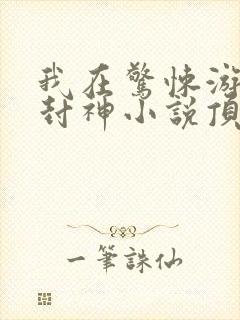 我在驚悚游
封神小說頂
一筆誅仙